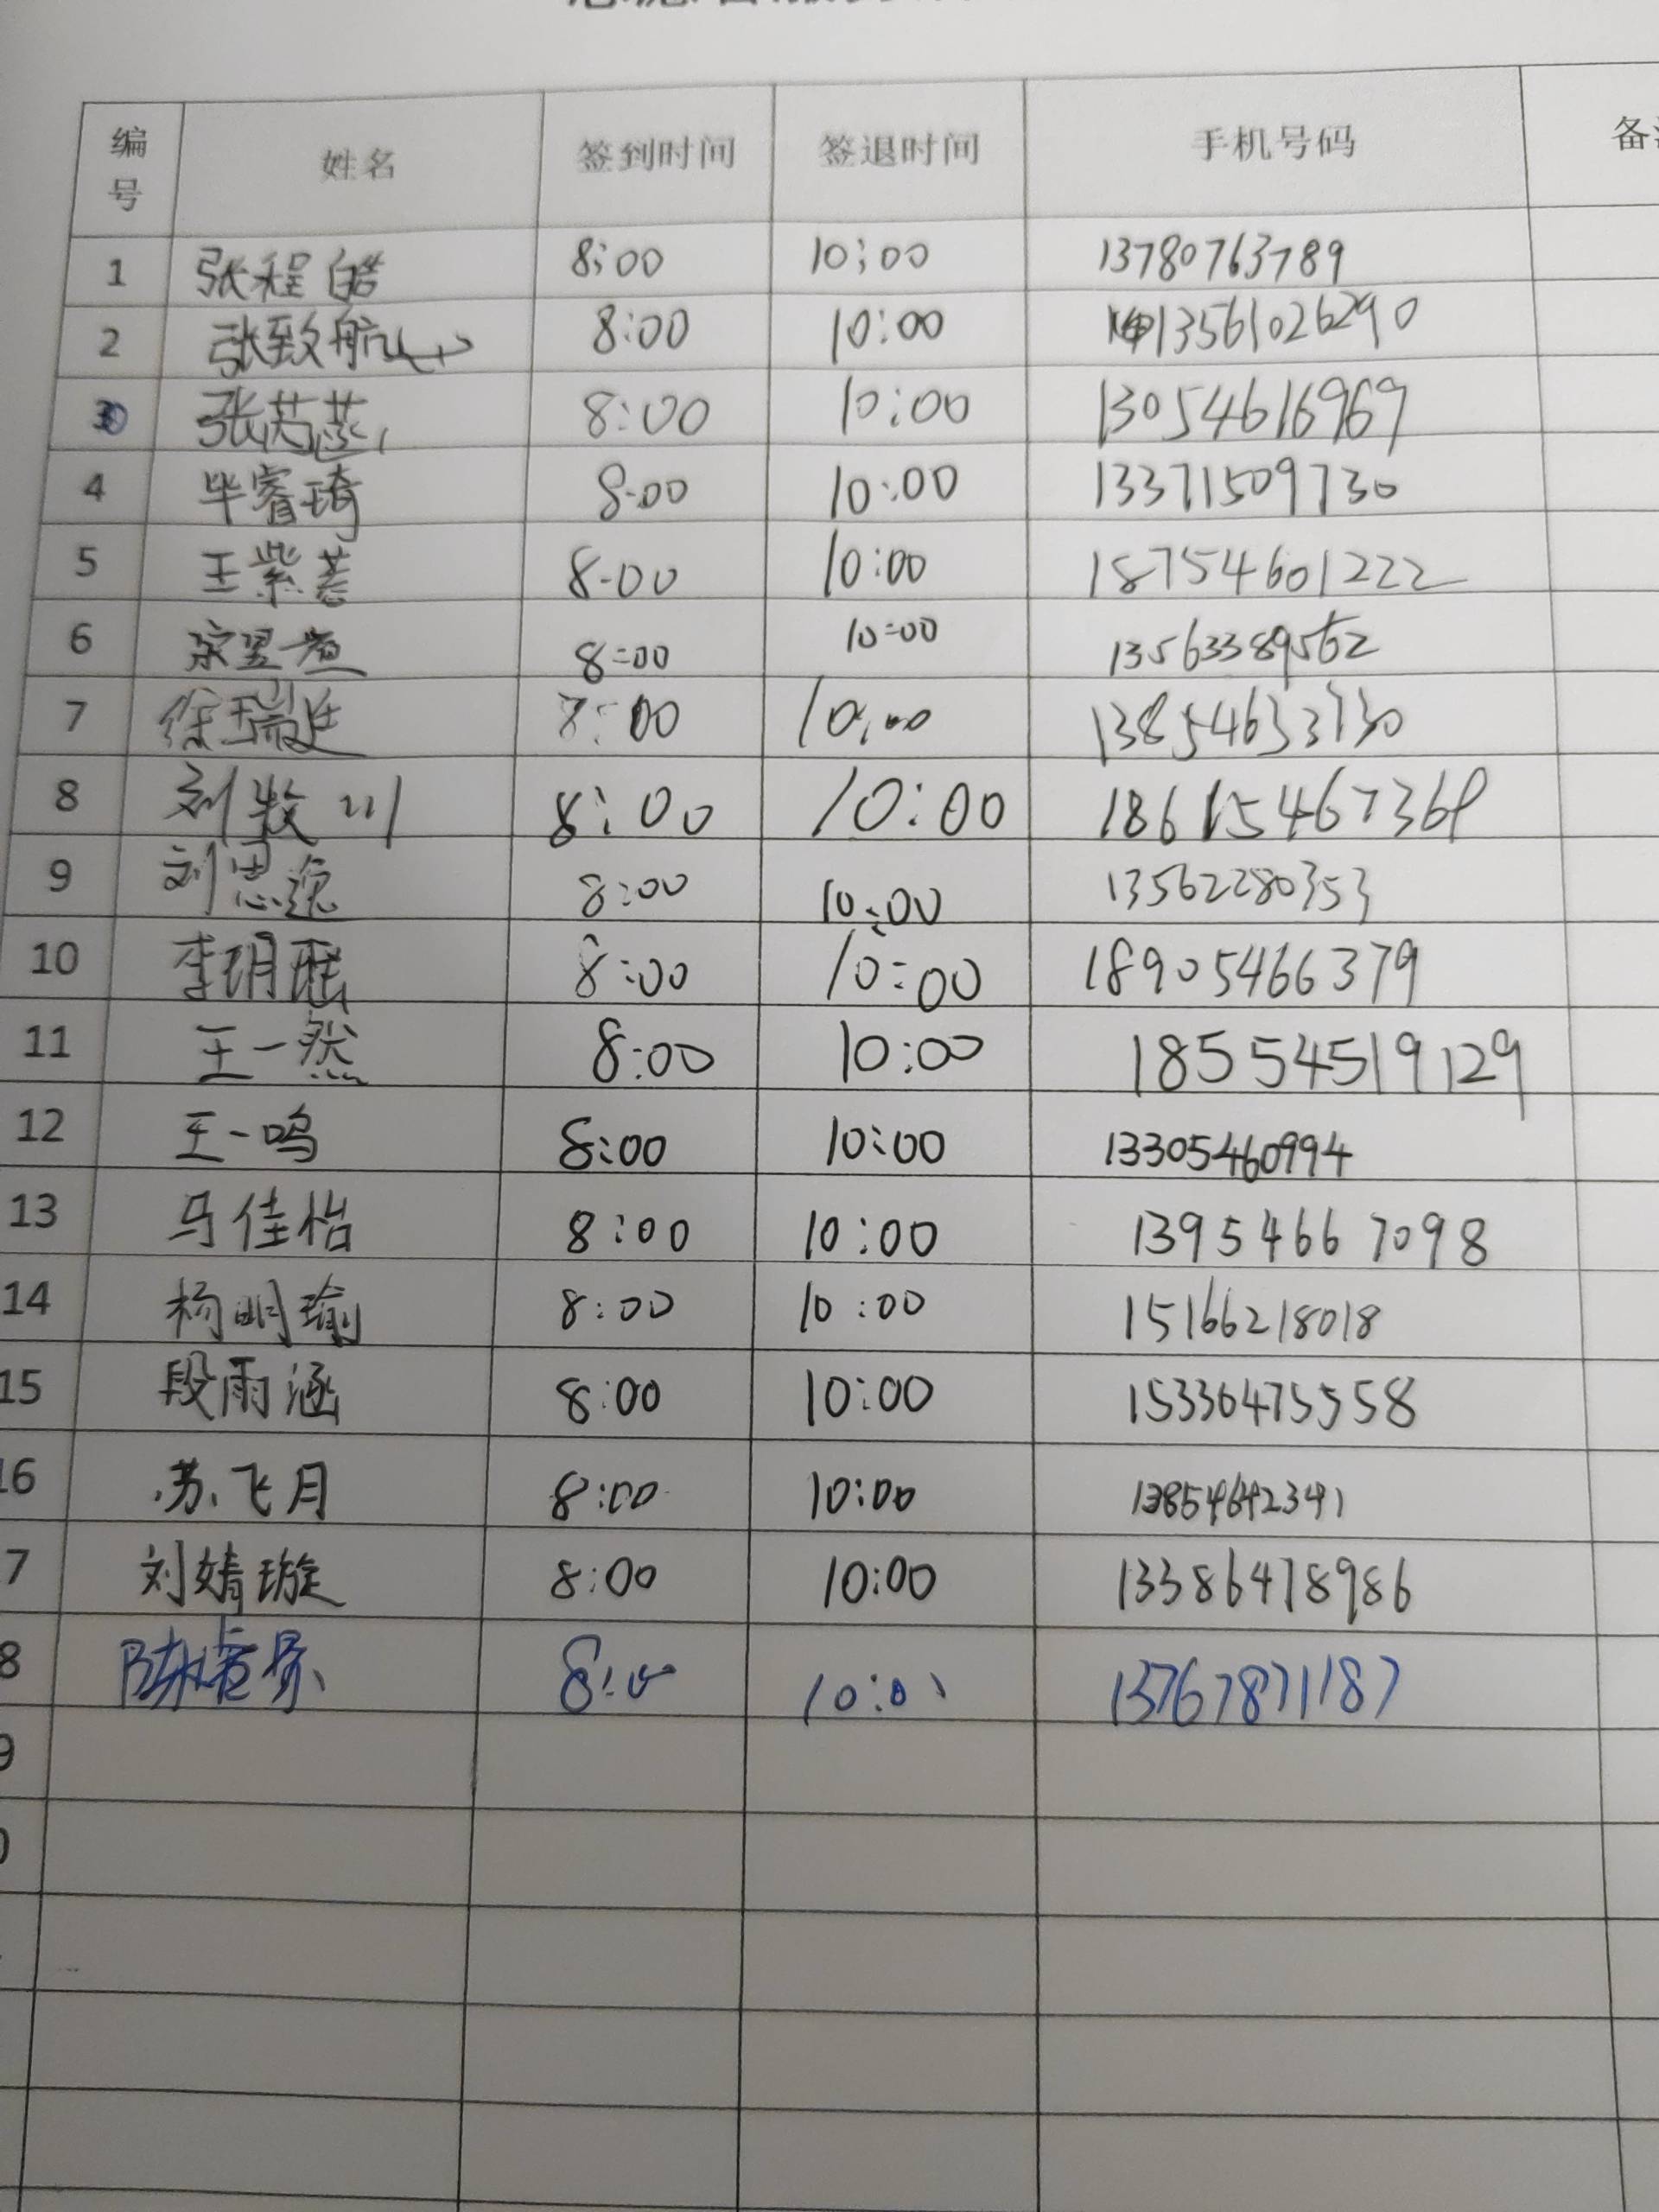 编号 姓名 签到时间 签退时间 手机号码
1 张程皓 8:00 10:00 13780763789
2 张致航 8:00 10:00 13561026290
3 张芮蕊 8:00 10:00 13054616969
4 毕睿琦 8:00 10:00 13371509730
5 王紫萱 8:00 10:00 18754601222
6 8:00 10:00 13563389562
7 徐瑞廷 8:00 10:00 13854633730
8 刘牧川 8:00 10:00 18615467369
9 刘思逸 8:00 10:00 13562280353
10 李玥 8:00 10:00 18905466379
11 王一然 8:00 10:00 18554519129
12 王一鸣 8:00 10:00 13305460994
13 马佳怡 8:00 10:00 13954667098
14 杨明瑜 8:00 10:00 15166218018
15 段雨涵 8:00 10:00 15336475558
16 苏飞月 8:00 10:00 13854642341
7 刘婧璇 8:00 10:00 13386478986
8 8:00 10:00 13767871187
9